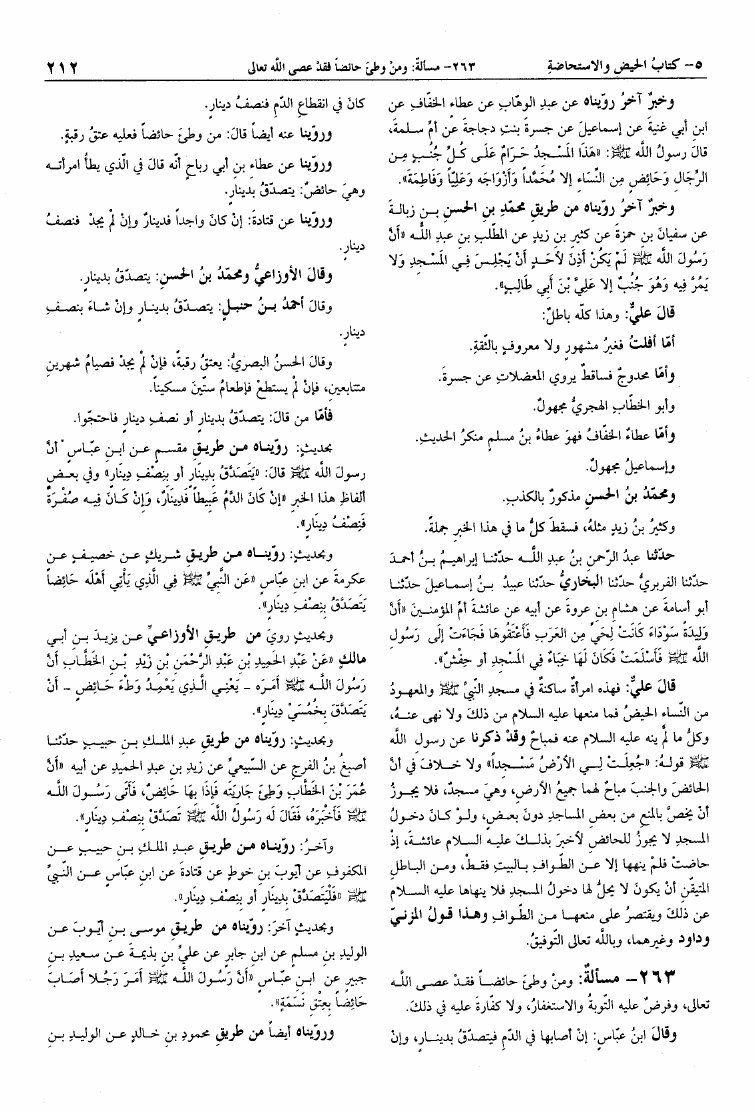 ٥- كتابُ الحيض والاستحاضةِ
٢٦٣- مسألةٌ: ومنْ وطئَ حائضاً فقدْ عصى اللَّه تعالى
٢١٢
وخبرٌ آخرُ روّيناه عن عبدِ الوهّابِ عن عطاءٍ الخفّافِ عن
ابنِ أبي غنيةَ عن إسماعيلَ عن جسرةَ بنتِ دجاجةَ عن أمِّ سلمةَ،
قالَ رسولُ اللَّه ﷺ: «هَذَا المَسْجِدُ حَرَامٌ عَلَى كُلِّ جُنُبٍ مِـن
الرِّجَالِ وَحَائِضٍ مِن النِّسَاءِ إلا مُحَمَّداً وَأَزْوَاجَه وَعَلِيّاً وَفَاطِمَةَ».
وخبرٌ آخرُ روّيناه من طريقِ محمّدِ بنِ الحسنِ بـن زبالـةَ
عن سفيانَ بنِ حمزةَ عن كثيرِ بنِ زيدٍ عن المطّلبِ بنِ عبدِ اللَّـه «أَنَّ
رَسُولَ اللَّه ﷺ لَمْ يَكُنْ أَذِنَ لأَحَـدٍ أَنْ يَجْلِسَ فِـي المَسْجِدِ وَلا
يَمُرَّ فِيه وَهُوَ جُنُبٌ إلا عَلِيَّ بْنَ أَبِي طَالِبٍ».
قالَ عليٌّ: وهذا كلّه باطلٌ:
أمّا أفلتُ فغيرُ مشهورٍ ولا معروفٍ بالثّقةِ.
وأمّا محدوجٌ فساقطٌ يروي المعضلاتِ عن جسرةَ.
وأبو الخطّابِ الهجريُّ مجهولٌ.
وأمّا عطاءٌ الخفّافُ فهوَ عطاءُ بنُ مسلمٍ منكرُ الحديثِ.
وإسماعيلُ مجهولٌ.
ومحمّدُ بنُ الحسنِ مذكورٌ بالكذبِ.
وكثيرُ بنُ زيدٍ مثله، فسقطَ كلُّ ما في هذا الخبرِ جملةً.
حدّثنا عبدُ الرّحمنِ بنُ عبدِ اللَّـه حدّثنا إبراهيمُ بـنُ أحمدَ
حدّثنا الفربريُّ حدّثنا البخاريُّ حدّثنا عبيدُ بـنُ إسماعيلَ حدّثنا
أبو أسامةَ عن هشامِ بنِ عروةَ عن أبيه عن عائشةَ أمِّ المؤمنينَ «أَنَّ
وَلِيدَةً سَوْدَاءَ كَانَتْ لِحَيٍّ مِن العَرَبِ فَأَعْتَقُوهَا فَجَاءَتْ إلَى رَسُولِ
اللَّه ﷺ فَأَسْلَمَتْ فَكَانَ لَهَا خِبَاءٌ فِي المَسْجِدِ أو حِفْشٌ».
قالَ عليٌّ: فهذه امرأةٌ ساكنةٌ في مسجدِ النّبيِّ ﷺ والمعهودُ
من النّساءِ الحيضُ فما منعها عليه السلام من ذلكَ ولا نهى عنـه،
وكلُّ ما لمْ ينه عليه السلام عنه فمباحٌ وقدْ ذكرنا عن رسولِ اللَّه
ﷺ قولـهُ: «جُعِلَتْ لِـي الأَرْضُ مَسْـجِداً» ولا خـلافَ في أنَّ
الحائضَ والجنبَ مباحٌ لهما جميعُ الأرضِ، وهيَ مسجدٌ، فلا يجـوزُ
أنْ يخصَّ بالمنعِ من بعضِ المساجدِ دونَ بعضٍ، ولوْ كـانَ دخـولُ
المسجدِ لا يجوزُ للحائضِ لأخبرَ بذلـكَ عليـه السلام عائشـةَ، إذْ
حاضتْ فلمْ ينهها إلا عـن الطّـوافِ بـالبيتِ فقـطْ، ومـن البـاطلِ
المتيقّنِ أنْ يكونَ لا يحلُّ لها دخولُ المسجدِ فلا ينهاها عليـه السـلام
عن ذلكَ ويقتصرُ على منعهـا مـن الطّـوافِ وهـذا قـولُ المزنيِّ
وداود وغيرهما، وباللَّه تعالى التّوفيقُ.
٢٦٣- مسألةٌ: ومنْ وطئَ حائضـاً فقـدْ عصـى اللَّـه
تعالى، وفرضٌ عليه التّوبةُ والاستغفارُ، ولا كفّارةَ عليه في ذلكَ.
وقالَ ابنُ عبّاسٍ: إنْ أصابها في الدّمِ فيتصدّقُ بدينـارٍ، وإنْ
كانَ في انقطاعِ الدّمِ فنصفُ دينارٍ.
وروّينا عنه أيضاً قالَ: من وطئَ حائضاً فعليه عتقُ رقبةٍ.
وروّينا عن عطاءِ بنِ أبي رباحٍ أنّه قالَ في الّذي يطأُ امرأتـه
وهيَ حائضٌ: يتصدّقُ بدينارٍ.
وروّينا عن قتادةَ: إنْ كانَ واجداً فدينارٌ وإنْ لمْ يجدْ فنصفُ
دينارٍ.
وقالَ الأوزاعيُّ ومحمّدُ بنُ الحسنِ: يتصدّقُ بدينارٍ.
وقالَ أحمدُ بـنُ حنبلٍ: يتصدّقُ بدينـارٍ وإنْ شـاءَ بنصفِ
دينارٍ.
وقالَ الحسنُ البصريُّ: يعتقُ رقبةً، فإنْ لمْ يجدْ فصيامُ شهرينِ
متتابعينِ، فإنْ لمْ يستطعْ فإطعامُ ستّينَ مسكيناً.
فأمّا من قالَ: يتصدّقُ بدينارٍ أو نصفِ دينارٍ فاحتجّوا.
بحديثٍ: روّيناه مـن طريـقِ مقسـمٍ عـن ابـنِ عبّـاسٍ "أنَّ
رسولَ اللَّه ﷺ قالَ: «يَتَصَدَّقُ بِدِينَارٍ أو بِنِصْفِ دِينَارٍ» وفي بعـضِ
ألفاظِ هذا الخبرِ «إنْ كَانَ الدَّمُ عَبِيطاً فَدِينَارٌ، وَإِنْ كَـانَ فِيـه صُفْـرَةٌ
فَنِصْفُ دِينَارٍ».
وبحديثٍ: روّينـاه مـن طريـقِ شـريكٍ عـن خصيـفٍ عـن
عكرمةَ عن ابنِ عبّاسٍ «عَن النَّبِيِّ ﷺ فِي الَّذِي يَأْتِي أَهْلَه حَائِضاً
يَتَصَدَّقُ بِنِصْفِ دِينَارٍ».
وبحديثٍ رويَ من طريقِ الأوزاعيِّ عـن يزيـدَ بـنِ أبـي
مالكٍ «عَنْ عَبْدِ الحَمِيدِ بْنِ عَبْدِ الرَّحْمَنِ بْنِ زَيْدِ بْـنِ الخَطَّـابِ أَنَّ
رَسُولَ اللَّـه ﷺ أَمَرَه - يَعْنِـي الَّـذِي يَتَعَمَّدُ وَطْءَ حَائِـضٍ - أَنْ
يَتَصَدَّقَ بِخُمُسَيْ دِينَارٍ».
وبحديثٍ: روّيناه من طريقِ عبدِ الملـكِ بـنِ حبيـبٍ حدّثنـا
أصبغُ بنُ الفرجِ عن السّبيعيِّ عن زيدِ بنِ عبدِ الحميدِ عن أبيه «أَنَّ
عُمَرَ بْنَ الخَطَّابِ وَطِئَ جَارِيَتَه فَإِذَا بِهَا حَائِضٌ، فَأَتَى رَسُـولَ اللَّـه
ﷺ فَأَخْبَرَهُ، فَقَالَ لَه رَسُولُ اللَّه ﷺ تَصَدَّقْ بِنِصْفِ دِينَارٍ».
وآخـرُ: روّينـاه مـن طريـقِ عبـدِ الملـكِ بـنِ حبيـبٍ عـن
المكفوفِ عن أيّوبَ بنِ خوطٍ عن قتادةَ عن ابنِ عبّاسٍ عـن النّبيِّ
ﷺ «فَلْيَتَصَدَّقْ بِدِينَارٍ أو بِنِصْفِ دِينَارٍ».
وبحديثٍ آخرَ: روّيناه من طريـقِ موسـى بـنِ أيّـوبَ عـن
الوليدِ بنِ مسلمٍ عن ابنِ جابرٍ عن عليِّ بنِ بذيمةَ عـن سعيدِ بـنِ
جبيرٍ عن ابـنِ عبّـاسٍ «أَنَّ رَسُـولَ اللَّـه ﷺ أَمَـرَ رَجُـلا أَصَـابَ
حَائِضاً بِعِتْقِ نَسَمَةٍ».
وروّيناه أيضاً من طريقِ محمودِ بـنِ خـالدٍ عـن الوليدِ بـنِ